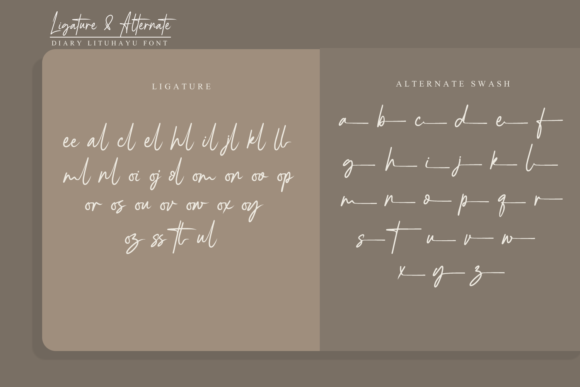 Ligature & Alternate
DIARY LITUHAYU FONT
LIGATURE
ee al cl el hl il jl kl ll
ml nl oi oj ol om on oo op
or os ou ov ow ox oy
oz ss tt ul
ALTERNATE SWASH
a b c d e f
g h i j k l
m n o p q r
s t u v w
x y z